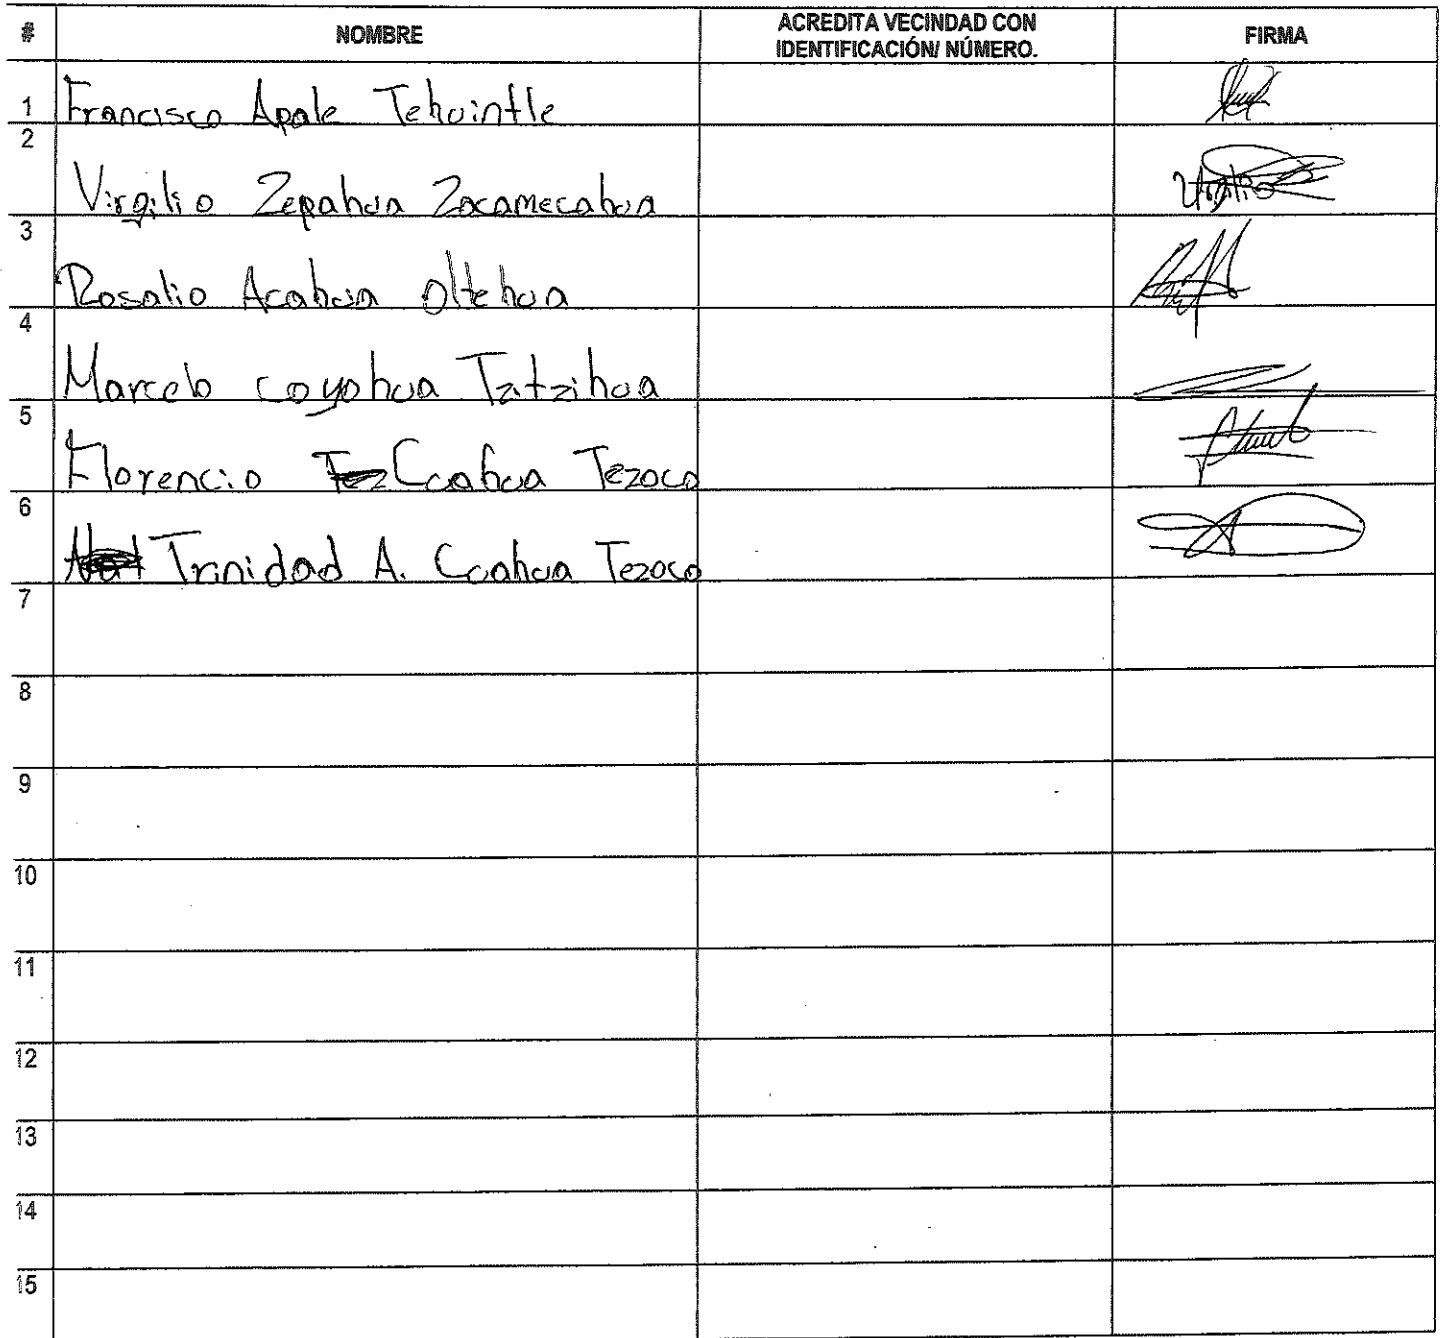 # NOMBRE ACREDITA VECINDAD CON IDENTIFICACIÓN/ NÚMERO. FIRMA
1 Francisco Apale Tehuintle
2 Virgilio Zepahua Zacamecahua
3 Rosalio Acahua Oltehua
4 Marcelo coyohua Tzitzihua
5 Florencio Cuahua Tezoco
6 Trinidad A. Cuahua Tezoco
7
8
9
10
11
12
13
14
15